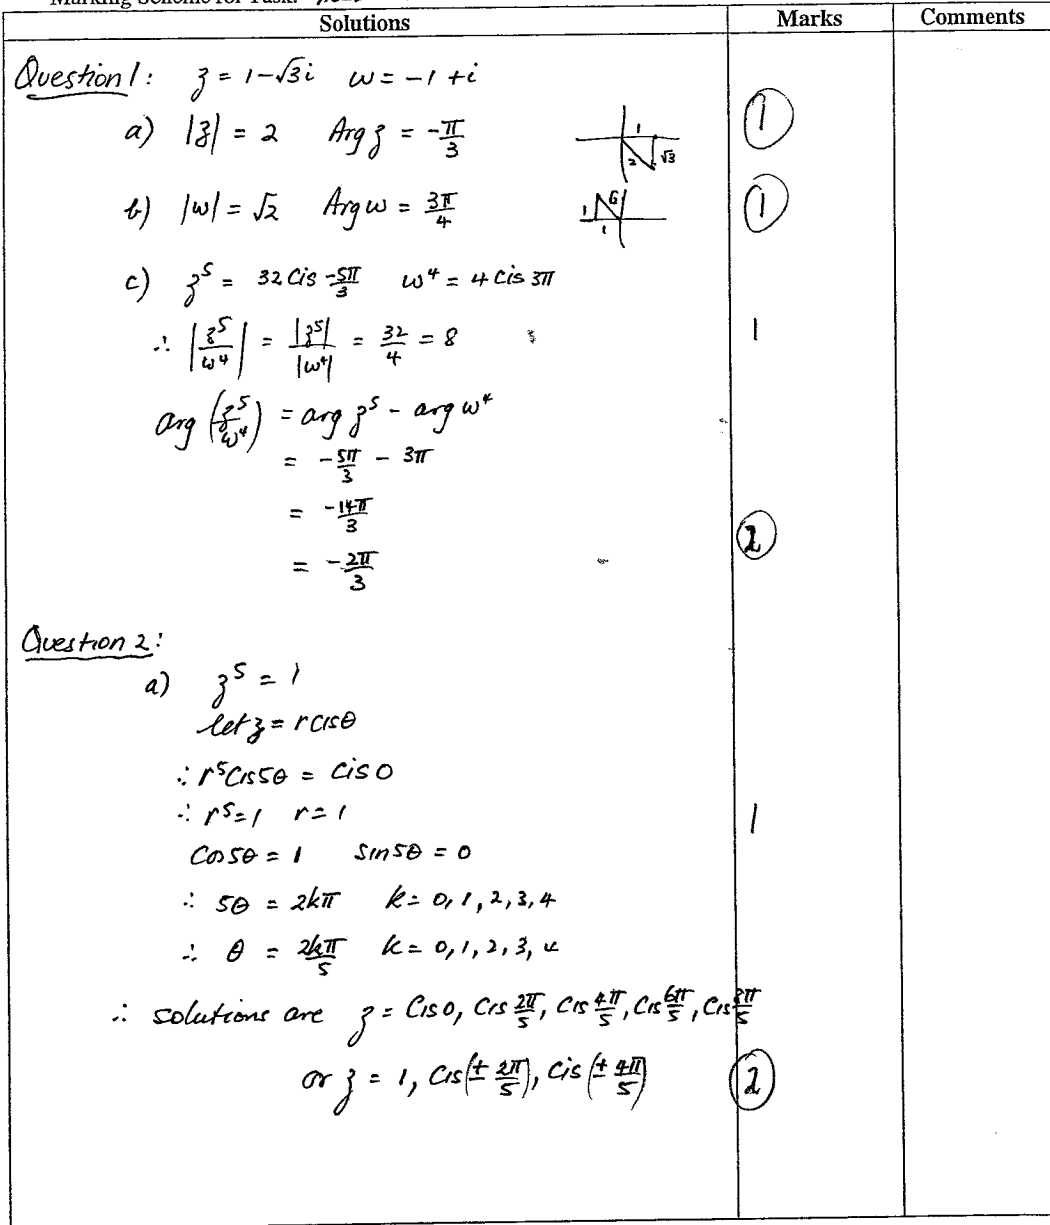 Marking Scheme for Task:
Solutions Marks Comments
Question 1: z = 1-√3i w = -1 + i
a) |z| = 2 Arg z = -π/3 1 2 √3 1
b) |w| = √2 Arg w = 3π/4 1 1 1
c) z⁵ = 32 Cis -5π/3 w⁴ = 4 Cis 3π
∴ |z⁵/w⁴| = |z⁵|/|w⁴| = 32/4 = 8 1
arg (z⁵/w⁴) = arg z⁵ - arg w⁴
= -5π/3 - 3π
= -14π/3
= -2π/3 2
Question 2:
a) z⁵ = 1
let z = r cisθ
∴ r⁵Cis5θ = Cis 0
∴ r⁵=1 r=1 1
Cos5θ = 1 Sin5θ = 0
∴ 5θ = 2kπ k = 0, 1, 2, 3, 4
∴ θ = 2kπ/5 k = 0, 1, 2, 3, 4
∴ solutions are z = Cis 0, Cis 2π/5, Cis 4π/5, Cis 6π/5, Cis 8π/5
or z = 1, Cis(± 2π/5), Cis(± 4π/5) 2